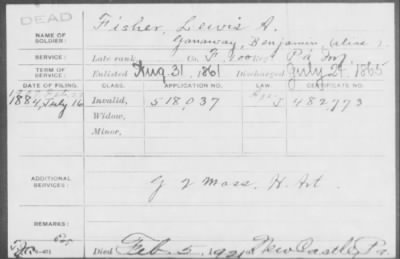 DEAD
Fisher, Lewis A.
NAME OF SOLDIER:
Ganaway, Benjamin (alias).
SERVICE: Late rank, Co. F, 100 Reg't Pa Inf
TERM OF SERVICE: Enlisted Aug 31, 1861 Discharged July 24, 1865
DATE OF FILING. CLASS. APPLICATION NO. LAW. CERTIFICATE NO.
1884, July 16 Invalid, 518,037 J 482,773
Widow,
Minor,
ADDITIONAL SERVICES: G 2 Mass. H. Art.
REMARKS:
Died Feb. 5, 1921 New Castle, Pa.